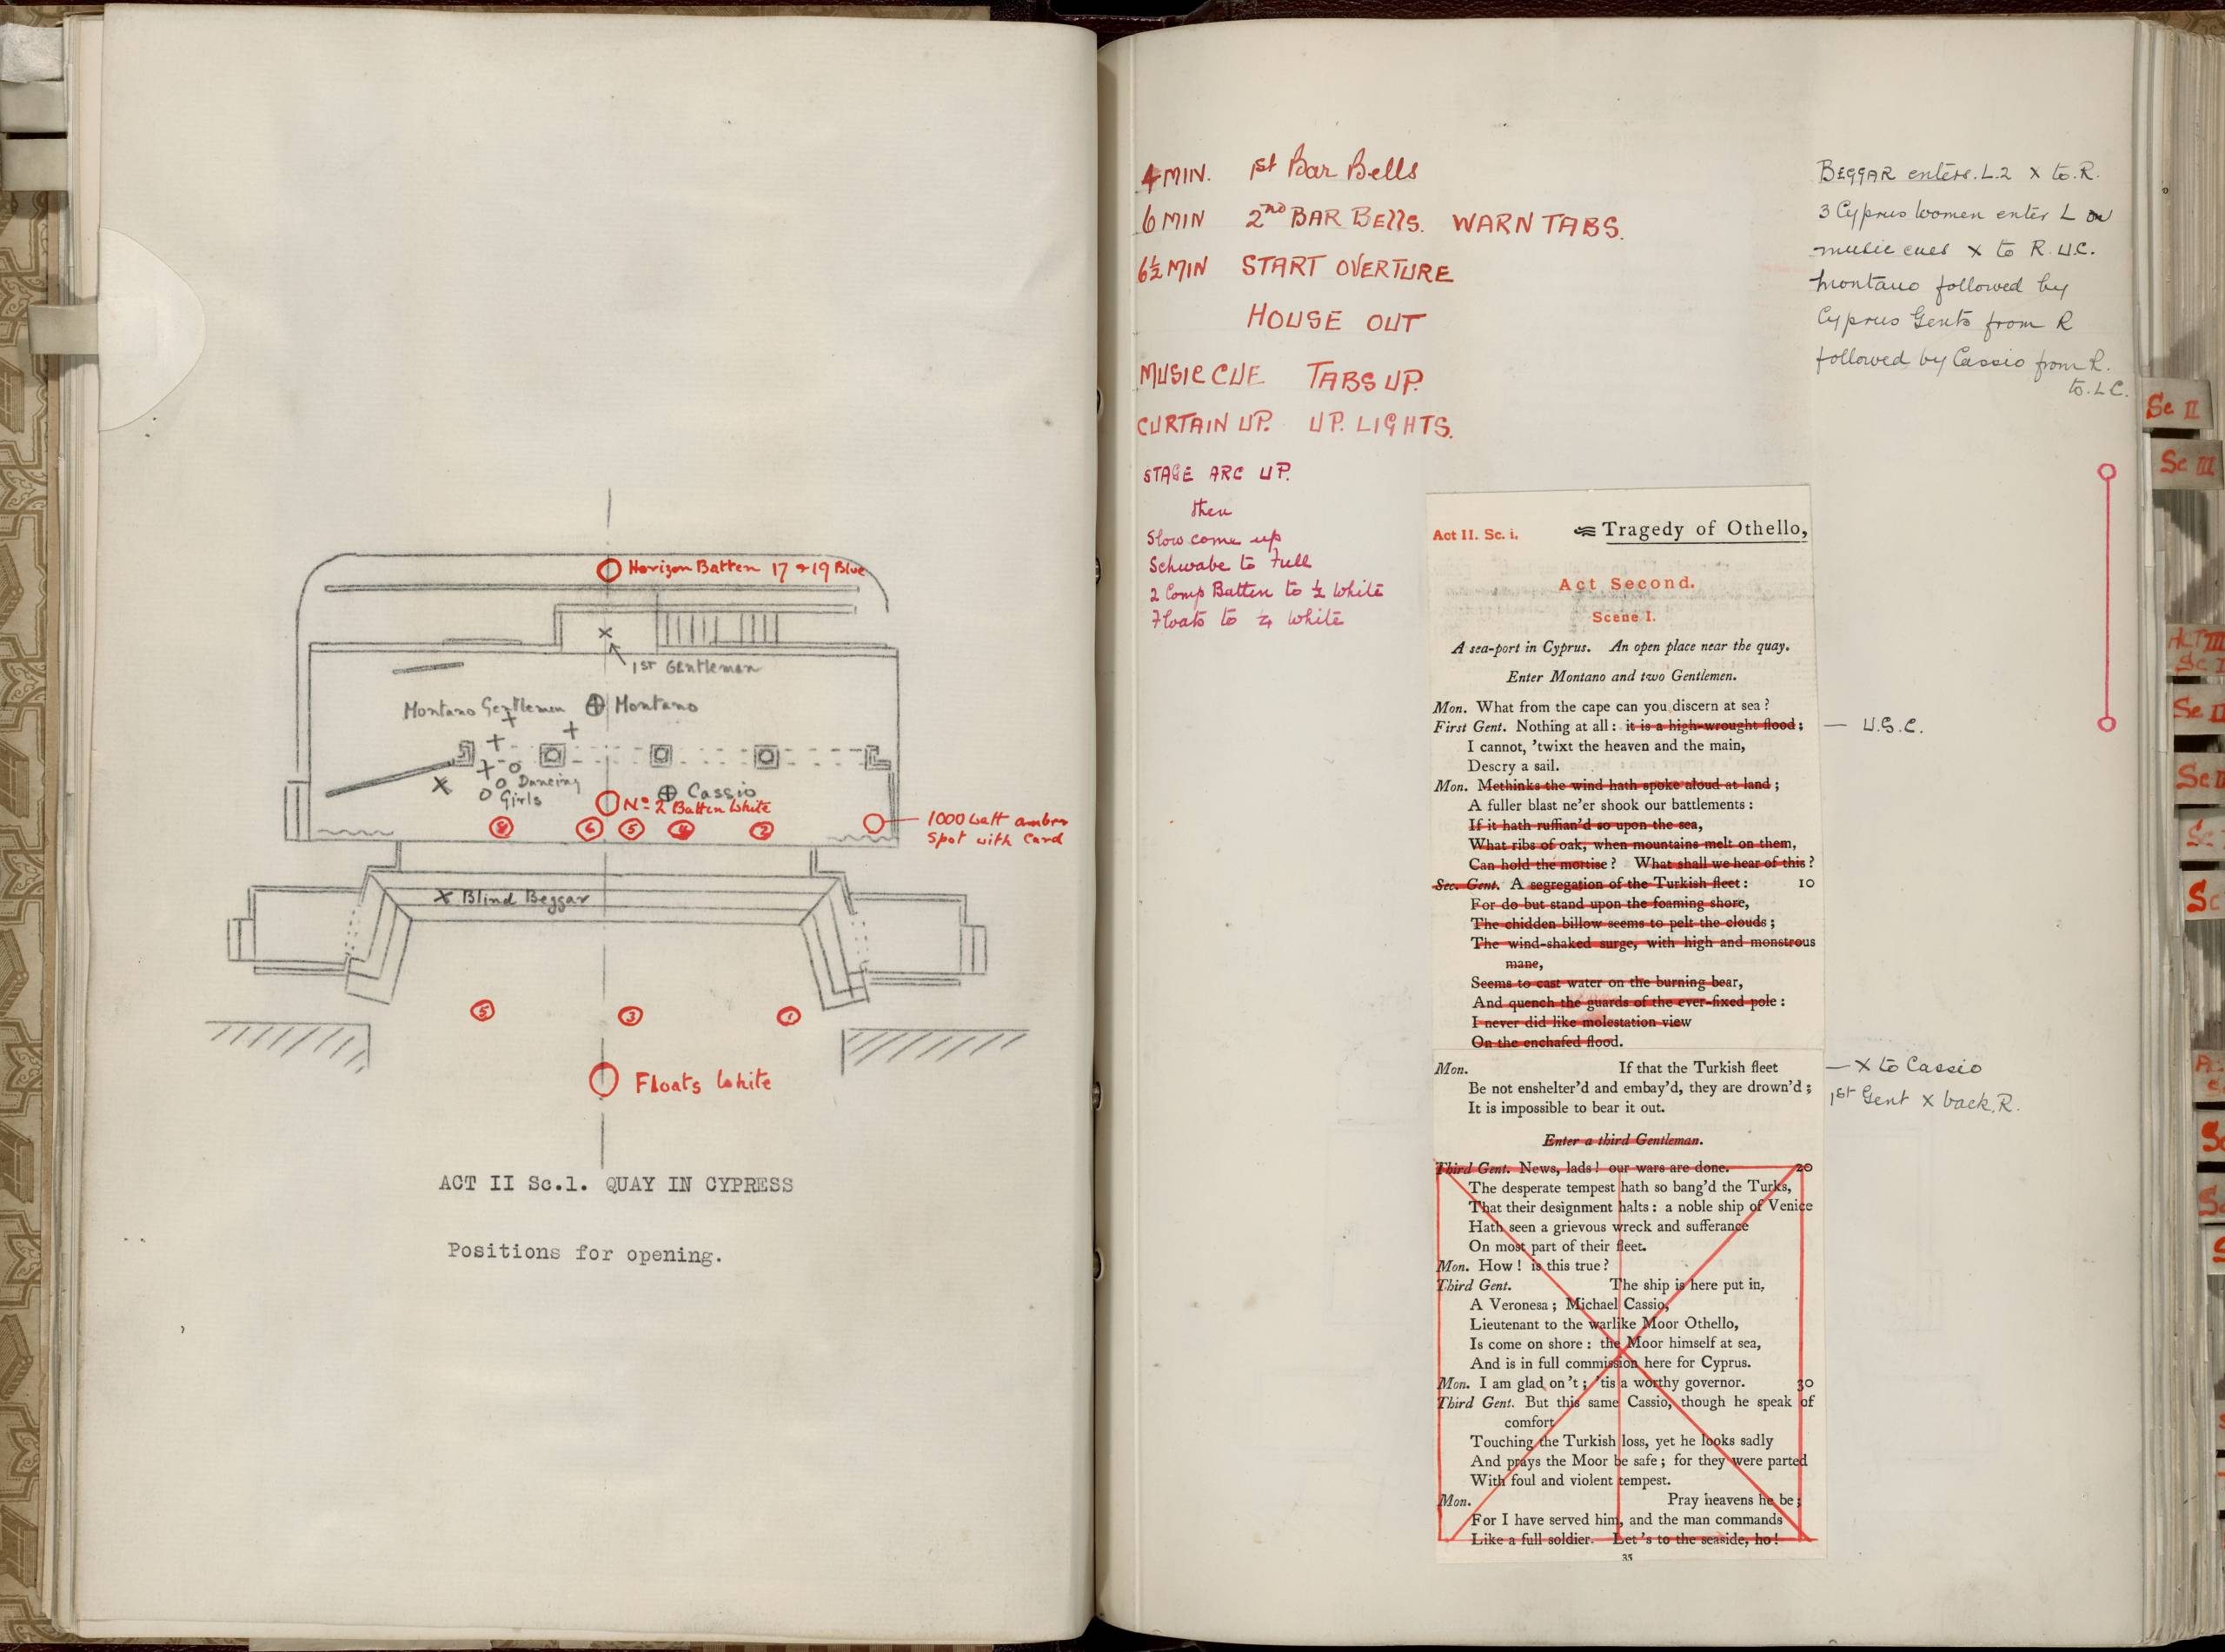 Horizon Batten 17 & 19 Blue
X
1st Gentleman
Montano Gentlemen
Montano
Dancing
Girls
X
Cassio
No 2 Batten White
8 6 5 4 2
1000 watt amber
spot with Card
X Blind Beggar
5 3 1
Floats White
ACT II Sc.1. QUAY IN CYPRESS
Positions for opening.
4 MIN. 1st Bar Bells
6 MIN 2ND BAR BELLS. WARN TABS.
6½ MIN START OVERTURE
HOUSE OUT
MUSIC CUE TABS UP.
CURTAIN UP. UP. LIGHTS.
STAGE ARC UP.
then
Slow come up
Schwabe to Full
2 Comp Batten to ½ White
Floats to ¼ White
BEGGAR enters. L.2 X to R.
3 Cyprus Women enter L on
music cues X to R. U.C.
Montano followed by
Cyprus Gents from R
followed by Cassio from R.
to. L C.
Act II. Sc. i.
Tragedy of Othello,
Act Second.
Scene I.
A sea-port in Cyprus. An open place near the quay.
Enter Montano and two Gentlemen.
Mon. What from the cape can you discern at sea ?
First Gent. Nothing at all : it is a high-wrought flood ;
— U.S.C.
I cannot, 'twixt the heaven and the main,
Descry a sail.
Mon. Methinks the wind hath spoke aloud at land ;
A fuller blast ne'er shook our battlements :
If it hath ruffian'd so upon the sea,
What ribs of oak, when mountains melt on them,
Can hold the mortise ? What shall we hear of this ?
Sec. Gent. A segregation of the Turkish fleet : 10
For do but stand upon the foaming shore,
The chidden billow seems to pelt the clouds ;
The wind-shaked surge, with high and monstrous
mane,
Seems to cast water on the burning bear,
And quench the guards of the ever-fixed pole :
I never did like molestation view
On the enchafed flood.
Mon. If that the Turkish fleet
— X to Cassio
Be not enshelter'd and embay'd, they are drown'd ;
1st Gent X back. R.
It is impossible to bear it out.
Enter a third Gentleman.
Third Gent. News, lads ! our wars are done. 20
The desperate tempest hath so bang'd the Turks,
That their designment halts : a noble ship of Venice
Hath seen a grievous wreck and sufferance
On most part of their fleet.
Mon. How ! is this true ?
Third Gent. The ship is here put in,
A Veronesa ; Michael Cassio,
Lieutenant to the warlike Moor Othello,
Is come on shore : the Moor himself at sea,
And is in full commission here for Cyprus.
Mon. I am glad on 't ; 'tis a worthy governor. 30
Third Gent. But this same Cassio, though he speak of
comfort
Touching the Turkish loss, yet he looks sadly
And prays the Moor be safe ; for they were parted
With foul and violent tempest.
Mon. Pray heavens he be ;
For I have served him, and the man commands
Like a full soldier. Let 's to the seaside, ho !
35
Sc II
Sc III
Act III
Sc I